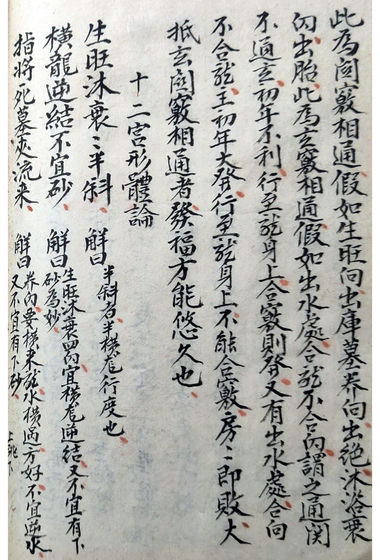 此為關竅相通假如生旺向出庫墓養向出絕沐浴衰
向出胎此為玄竅相通假如出水處合龍不合向謂之通関
不通玄初年不利行至龍身上合竅則發又有出水處合向
不合龍主初年大發行至龍身上不能合竅房々即敗大
抵玄関竅相通者發福方能悠久也
十二宮形體論
生旺沐衰々半斜 解曰半斜者半橫龍行度也
橫龍逆結不宜砂 解曰生旺沐衰四向宜橫龍逆結又不宜有下砂為妙
指將死墓突流来 解曰養向要橫来龍水橫過方好不宜逆水又不宜有下砂